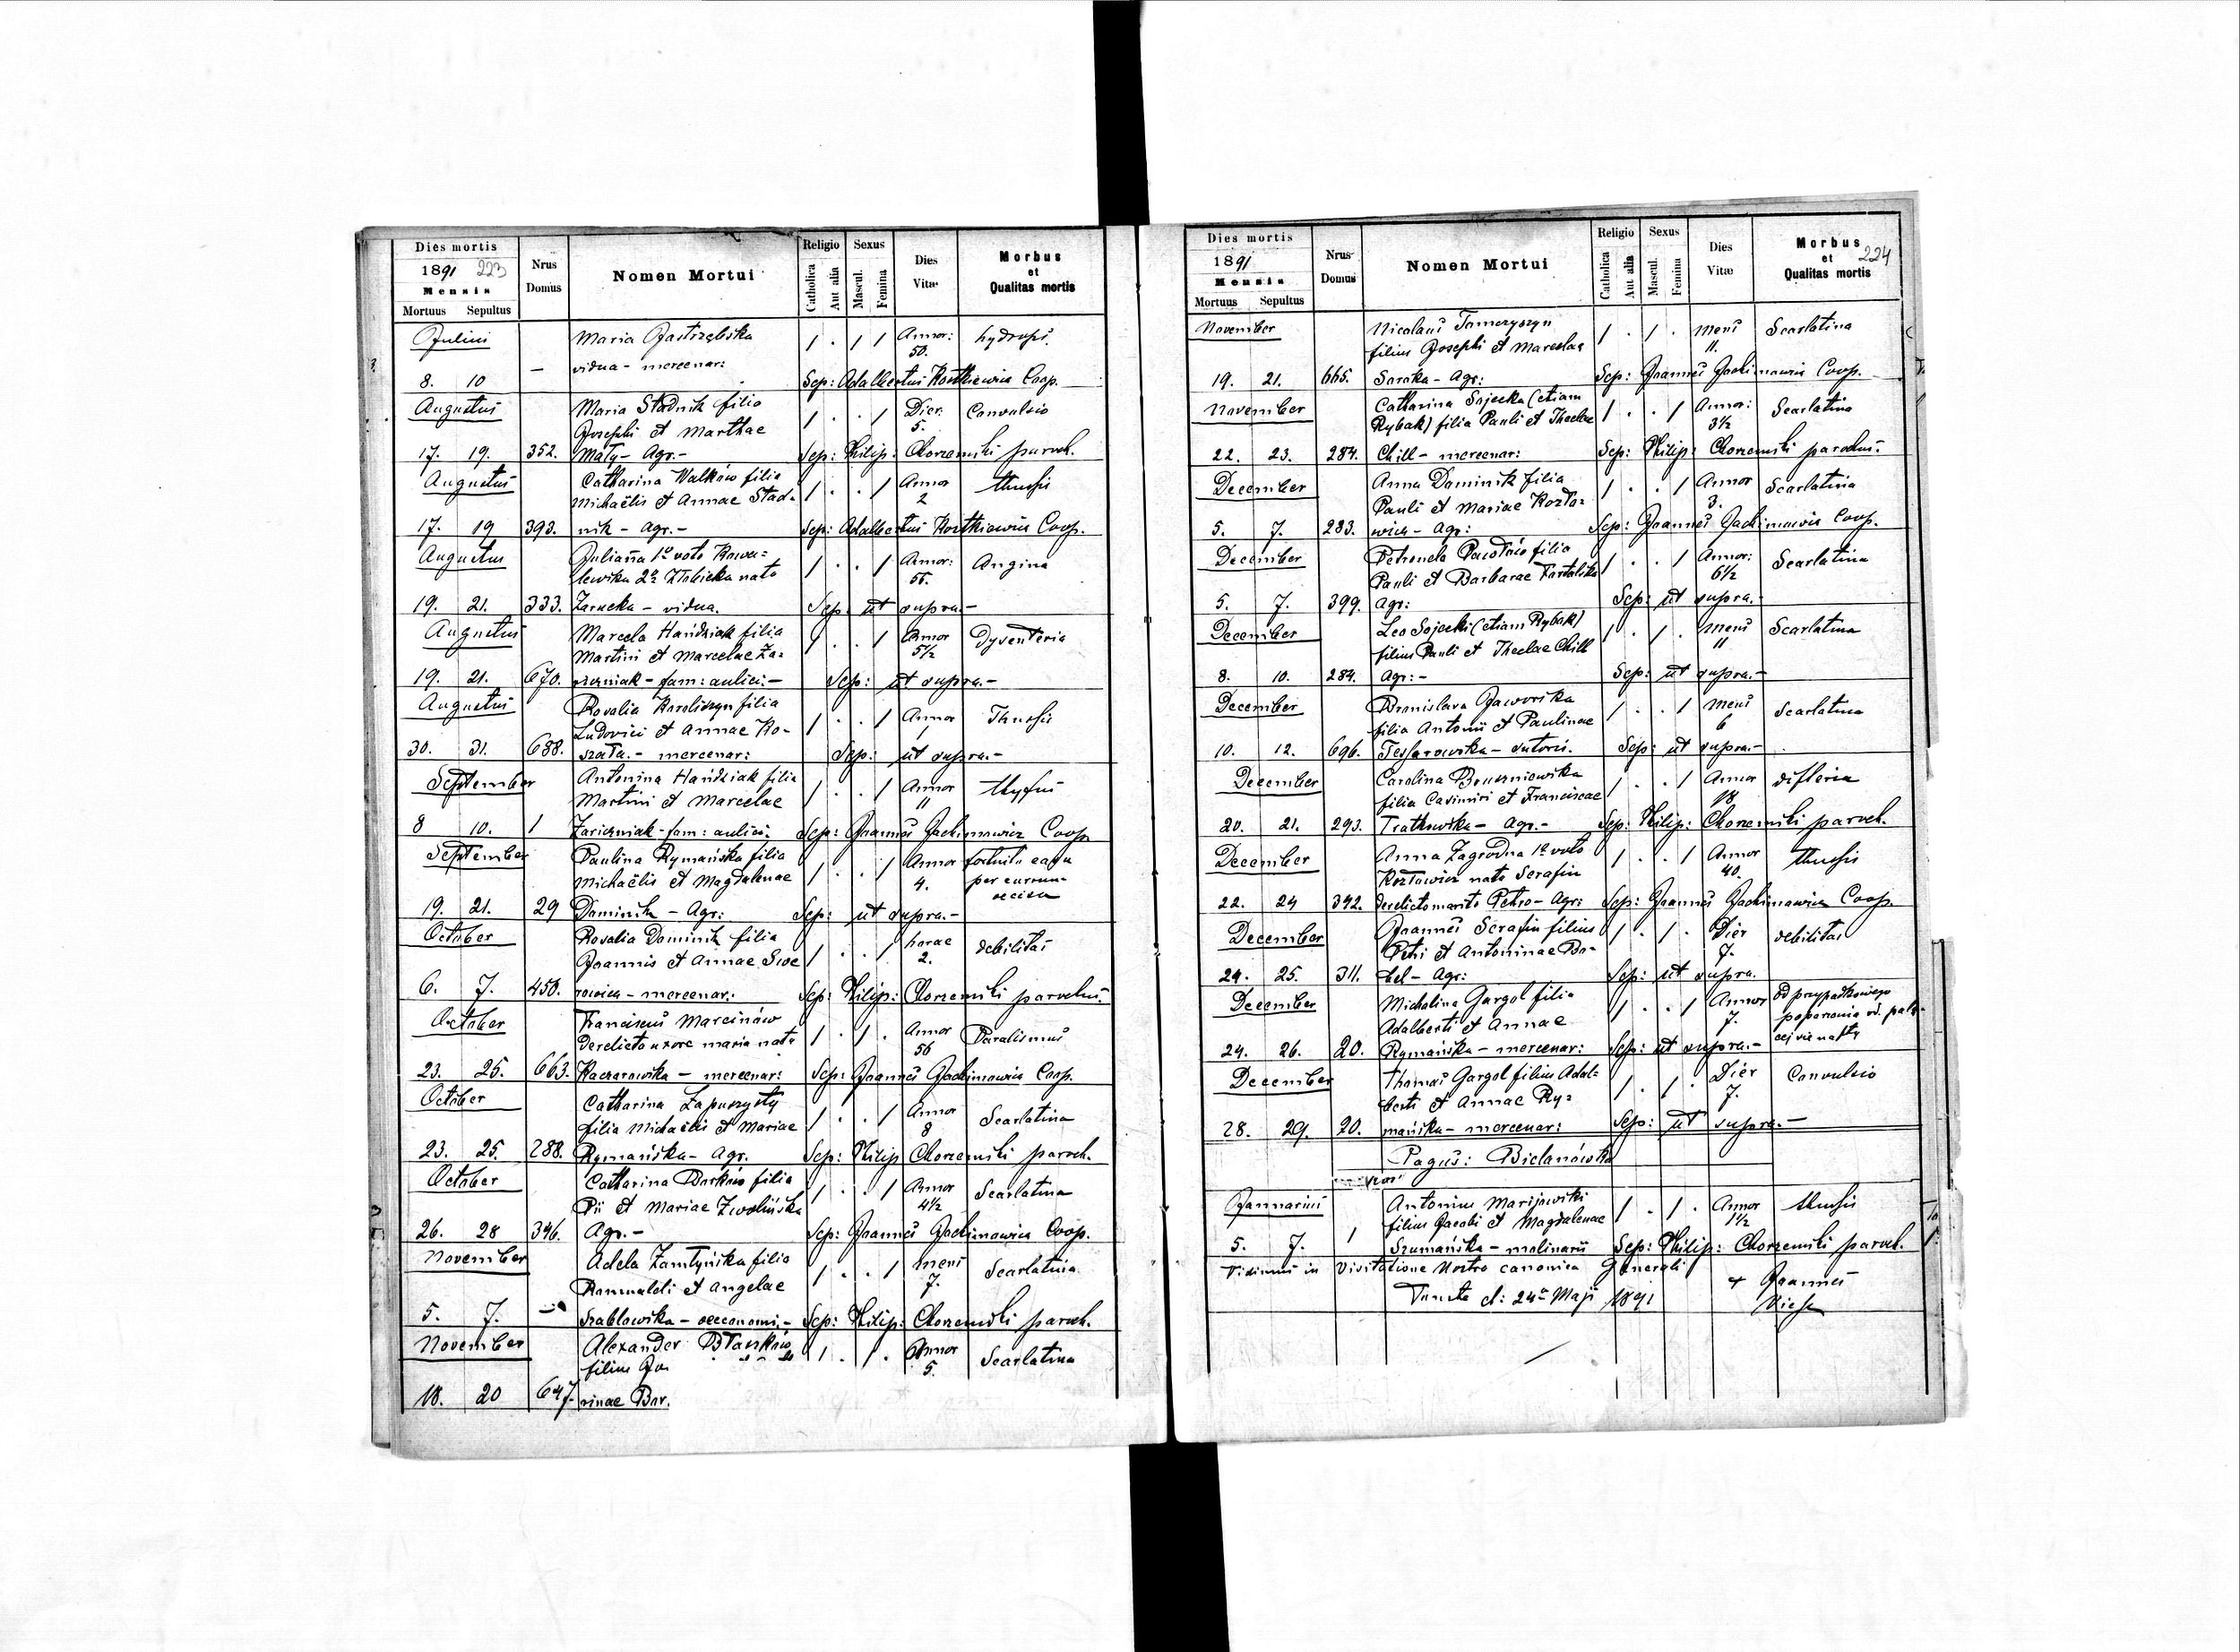 Dies mortis
1891 223
Mensis
Mortuus Sepultus
Nrus Domus
Nomen Mortui
Religio
Catholica
Aut alia
Sexus
Mascul.
Femina
Dies Vitæ
Morbus
et
Qualitas mortis
Julius Maria Jastrzębska / . / / Annor: 50. hydrops.
8. 10 — vidua - mercenar:
Sep: Adalbertus Kostkiewicz Coop.
Augustus Maria Stadnik filia / . . / Dier. 5. Convulsio
Josephi et Marthae
17. 19. 352. Mały - Agr. - Sep: Philip: Chorzemski paroch.
Augustus Catharina Walków filia / . . / Annor 2 thussis
Michaëlis et Annae Stad-
17. 19 393. nik - agr. - Sep: Adalbertus Kostkiewicz Coop.
Augustus Julianna 1º voto Kowa= / . . / Annor: 56. Angina
lewska 2º nata
19. 21. 333. Zarucka - vidua. Sep: ut supra. -
Augustus Marcela Handziak filia / . . / Annor 5½ Dysenteria
Martini et Marcelae Za=
19. 21. 670. - fam: aulici: - Sep: ut supra. -
Augustus Rosalia Karoliszyn filia / . . / Annor 1 Thussis
Ludovici et Annae Ko-
30. 31. 688. szała. - mercenar: Sep: ut supra. -
September Antonina Handziak filia / . . / Annor 11 thyfus
Martini et Marcelae
8 10. 1 Zariczniak - fam: aulici. Sep: Joannes Jachimowicz Coop.
September Paulina Rymańska filia / . . / Annor 4. fortuito casu
Michaëlis et Magdalenae per currum
occisa
19. 21. 29 Dominik - Agr: Sep: ut supra. -
October Rosalia Dominik filia / . . / horae 2. debilitas
Joannis et Annae Sive
6. 7. 450. rowicz - mercenar: Sep: Philip: Chorzemski parochus
October Franciscus Marcinów / . / . Annor 56 Paralismus
derelicta uxore Maria nata
23. 25. 663. Kaczarowska - mercenar: Sep: Joannes Jachimowicz Coop.
October Catharina Zapuszysty / . . / Annor 8 Scarlatina
filia Michaëlis et Mariae
23. 25. 288. Rymańska - Agr. Sep: Philip Chorzemski paroch.
October Catharina Barków filia / . . / Annor 4½ Scarlatina
Pii et Mariae Zwolińska
26. 28 346. Agr. - Sep: Joannes Jachimowicz Coop.
November Adela Zamłyńska filia / . . / mens 7. Scarlatina
Romualdi et Angelae
5. 7. Szablowska - oeconomi. - Sep: Philip: Chorzemski paroch.
November Alexander Błaszków / . / . Annor 5. Scarlatina
filius Jo
18. 20 647. rinae Bar.
Dies mortis
1891
Mensis
Mortuus Sepultus
Nrus Domus
Nomen Mortui
Religio
Catholica
Aut alia
Sexus
Mascul.
Femina
Dies Vitæ
Morbus 224
et
Qualitas mortis
November Nicolaus Tomeryszyn / . / . Mens 11. Scarlatina
filius Josephi et Marcelae
19. 21. 665. Saraka - Agr: Sep: Joannes Jachimowicz Coop.
November Catharina Sojecka (etiam / . . / Annor: 3½ Scarlatina
Rybak) filia Pauli et Theclae
22. 23. 284. Chill - mercenar: Sep: Philip: Chorzemski parochus.
December Anna Dominik filia / . . / Annor 3. Scarlatina
Pauli et Mariae Kozło=
5. 7. 283. wicz - Agr: Sep: Joannes Jachimowicz Coop.
December Petronela Pawłów filia / . . / Annor: 6½ Scarlatina
Pauli et Barbarae
5. 7. 399. Agr: Sep: ut supra. -
December Leo Sojecki (etiam Rybak) / . / . Mens 11 Scarlatina
filius Pauli et Theclae Chill
8. 10. 284. Agr: - Sep: ut supra. -
December Bronislava Jaworska / . . / Mens 6 Scarlatina
filia Antonii et Paulinae
10. 12. 696. Tessarowska - sutoris. Sep: ut supra. -
December Carolina Bruszniowska / . . / Annor 18 difteria
filia Casimiri et Franciscae
20. 21. 293. Tratkowska - Agr. - Sep: Philip: Chorzemski paroch.
December Anna Zagrodna 1º voto / . . / Annor 40. thussis
Kozłowicz nata Serafin
22. 24 342. derelicto marito Petro - Agr: Sep: Joannes Jachimowicz Coop.
December Joannes Serafin filius / . / . Dier 7. debilitas
Petri et Antoninae Bo-
24. 25. 311. bel - Agr: Sep: ut supra.
December Michalina Gargol filia / . . / Annor 7. od przypadkowego
Adalberti et Annae poparzenia od palą-
cej się nafty
24. 26. 20. Rymańska - mercenar: Sep: ut supra. -
December Thomas Gargol filius Adal= / . / . Dier 7. Convulsio
berti et Annae Ry=
28. 29. 20. mańska - mercenar: Sep: ut supra. -
Pagus: Bielanówka
Januarius Antonius Marijowski / . / . Annor 1½ thussis
filius Jacobi et Magdalenae
5. 7. 1 Szumańska - molinarii Sep: Philip: Chorzemski paroch.
Vidimus in Visitatione Nostra canonica Generali
d: 24º Maji 1891 + Joannes